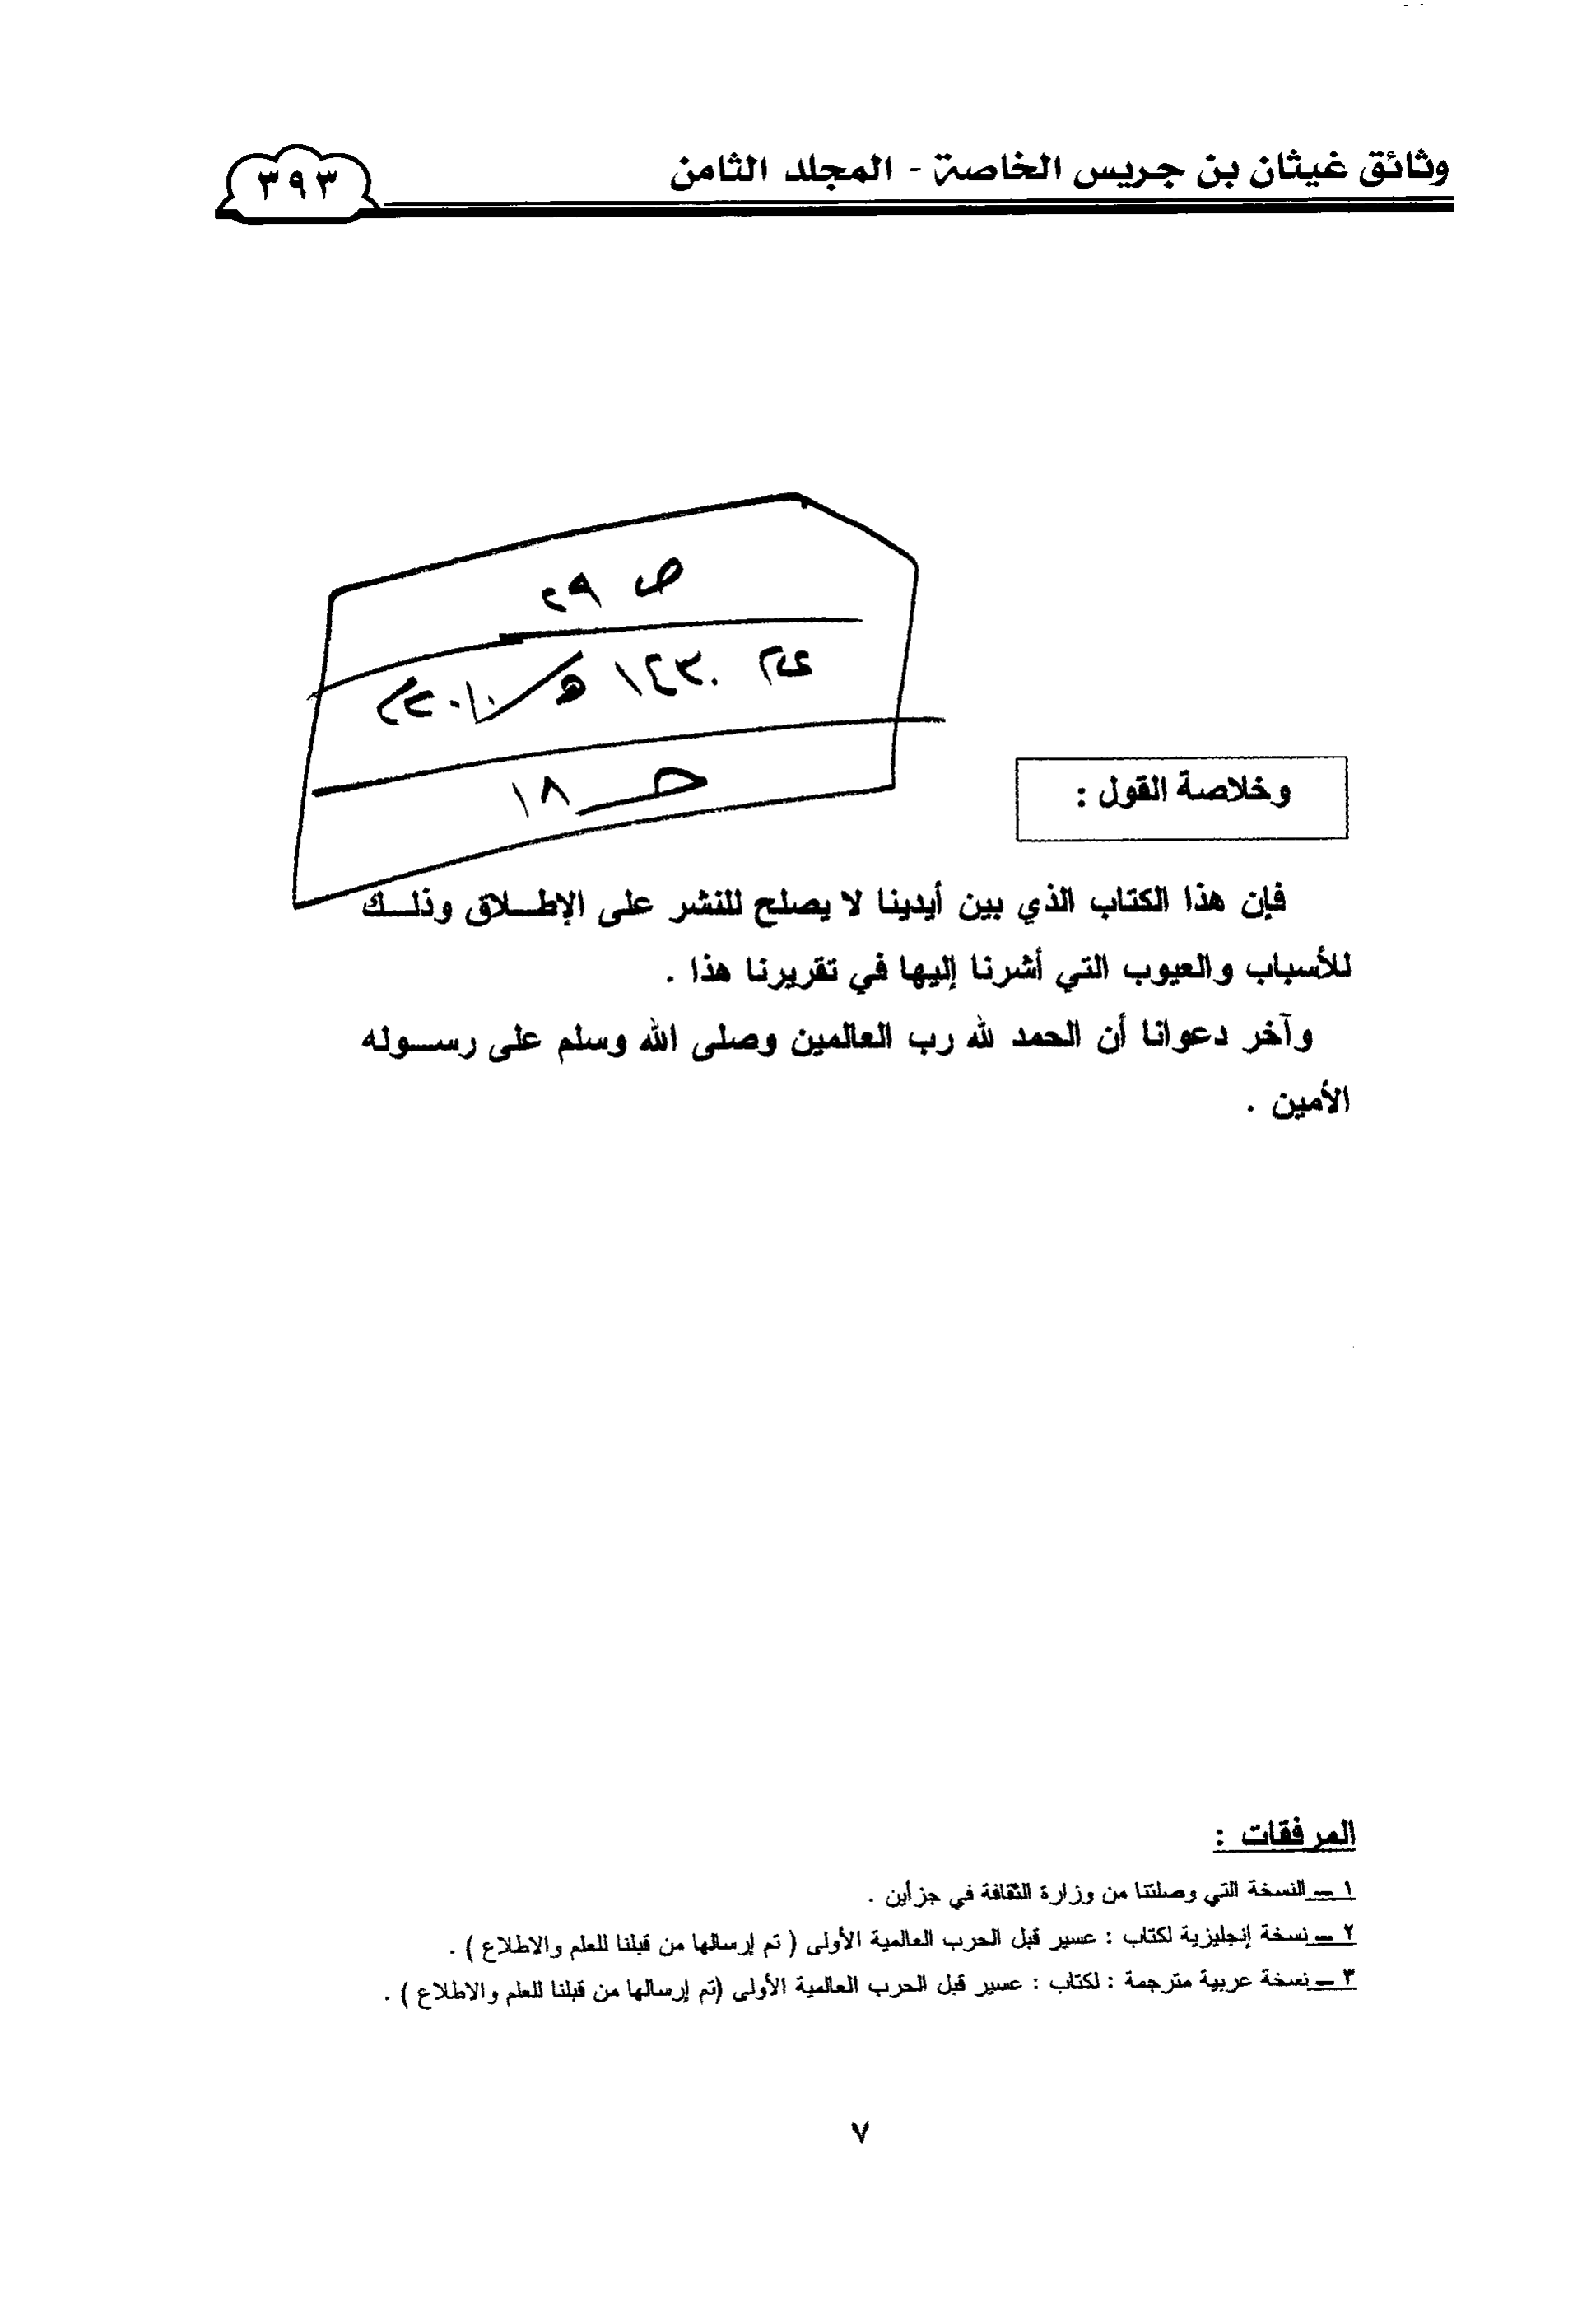 وثائق غيثان بن جريس الخاصة - المجلد الثامن
٣٩٣
ص ٢٩
١٤٣٠ هـ / ٢٠١٠م
حـ ١٨
وخلاصة القول :
فإن هذا الكتاب الذي بين أيدينا لا يصلح للنشر على الإطـــلاق وذلـــك
للأسباب والعيوب التي أشرنا إليها في تقريرنا هذا .
وآخر دعوانا أن الحمد لله رب العالمين وصلى الله وسلم على رســـوله
الأمين .
المرفقات :
١ ــ النسخة التي وصلتنا من وزارة الثقافة في جزأين .
٢ ــ نسخة إنجليزية لكتاب : عسير قبل الحرب العالمية الأولى ( تم إرسالها من قبلنا للعلم والاطلاع ) .
٣ ــ نسخة عربية مترجمة : لكتاب : عسير قبل الحرب العالمية الأولى (تم إرسالها من قبلنا للعلم والاطلاع ) .
٧